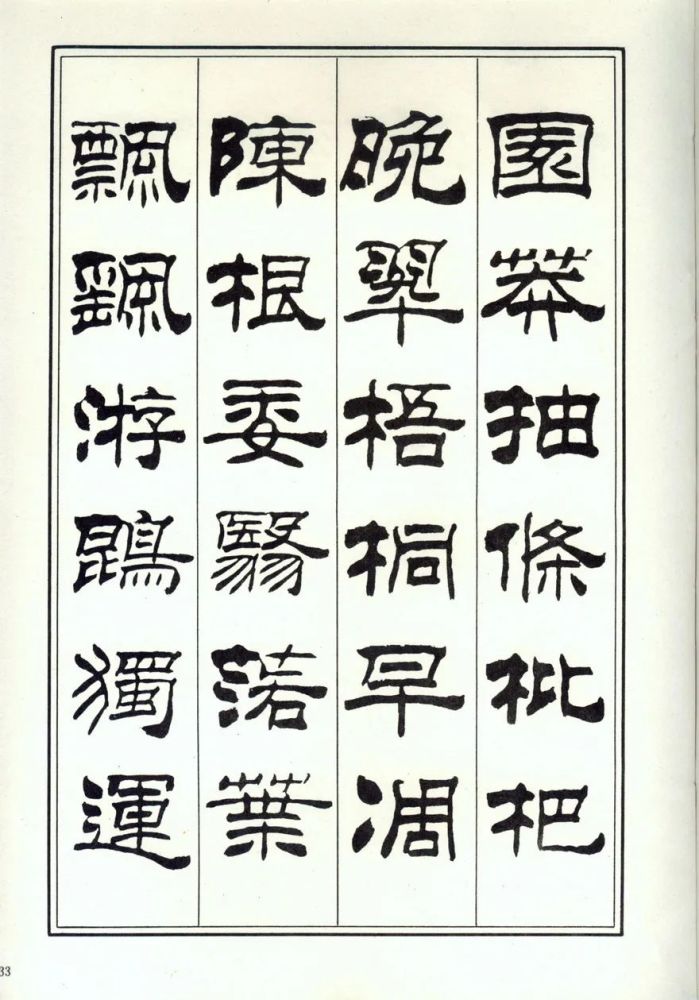 園莽抽條枇杷
晚翠梧桐早凋
陳根委翳落葉
飄颻游鵾獨運
33